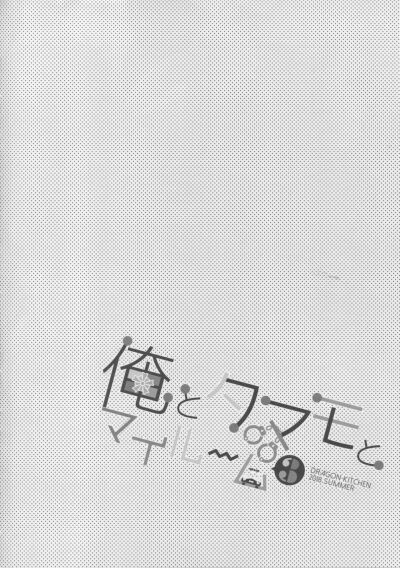 俺とクマモと
マイルーム
8
DRAGON-KITCHEN
2018 SUMMER